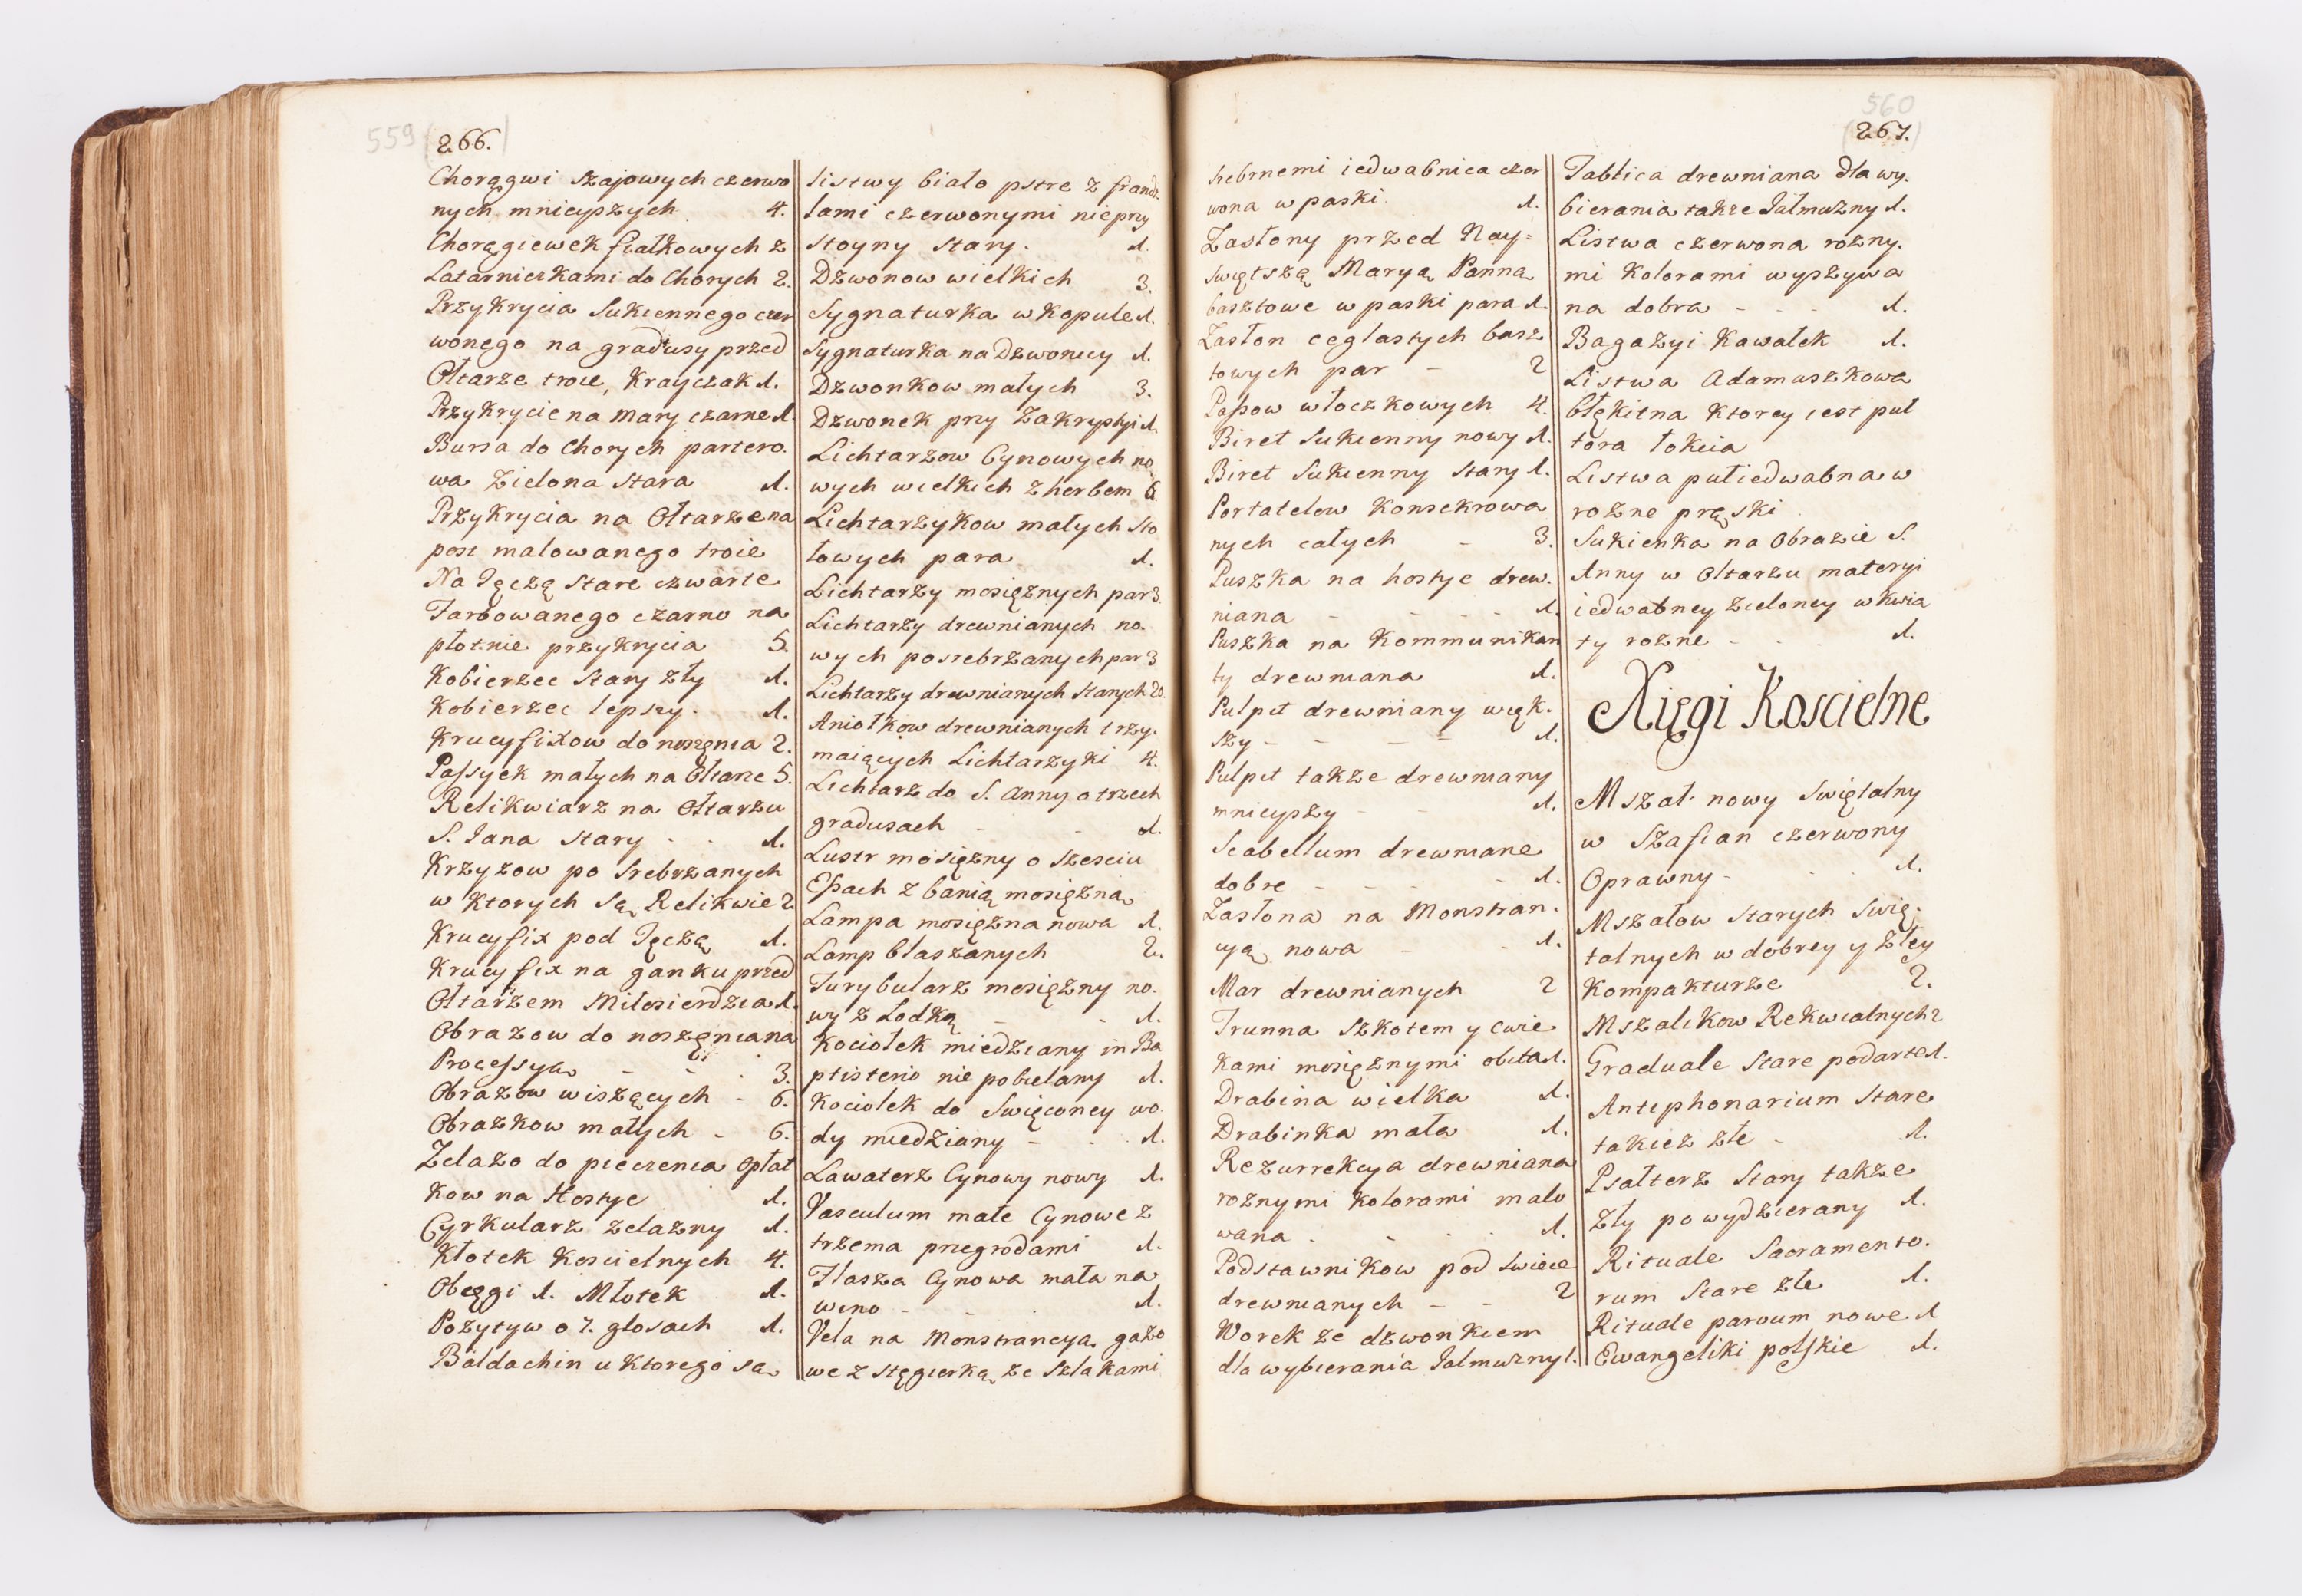 559
266.
Chorągwi szajowych czerwo
nych mnieyszych 4.
Chorągiewek fiałkowych z
Latarnieczkami do Chorych 2.
Przykrycia Sukiennego czer
wonego na gradusy przed
Ołtarze troie, Krayczak 1.
Przykrycie na mary czarne 1.
Bursa do Chorych partero.
wa Zielona stara 1.
Przykrycia na Ołtarze na
post malowanego troie
Na Tęczą stare czwarte
Farbowanego czarno na
płotnie przykrycia 5.
Kobierzec stary zły 1.
Kobierzec lepszy. 1.
Krucyfixow do noszęnia 2.
Passyek małych na Ołtarze 5.
Relikwiarz na Ołtarzu
S. Jana stary - - 1.
Krzyzow po srebrzanych
w Ktorych są Relikwie 2
Krucyfix pod Tęczą 1.
Krucyfix na ganku przed
Ołtarzem Miłosierdzia 1.
Obrazow do noszęnia na
Processyą - - - 3.
Obrazow wiszących - 6.
Obrazkow małych - 6.
Zelazo do pieczenia Opłat
kow na Hostye 1.
Cyrkularz zelazny 1.
Kłotek Koscielnych 4.
Obcęgi 1. Młotek 1.
Pozytyw o 7. głosach 1.
Baldachin u Ktorego są
listwy biało pstre z frandz.
lami czerwonymi nieprzy
stoyny stary. 1.
Dzwonow wielkich 3.
Sygnaturka w Kopule 1.
Sygnaturka na Dzwonicy 1.
Dzwonkow małych 3.
Dzwonek przy Zakrystyi 1.
Lichtarzow Cynowych no.
wych wielkich z herbem 6.
Lichtarzykow małych sto
łowych para 1.
Lichtarzy mosięznych par 3.
Lichtarzy drewnianych no.
wych posrebrzanych par 3
Lichtarzy drewnianych starych 20.
Aniołkow drewnianych trzy.
maiących Lichtarzyki 4.
Lichtarz do S. Anny o trzech
gradusach - - 1.
Lustr mosięzny o szesciu
Essach z banią mosięzną
Lampa mosięzna nowa 1.
Lamp blaszanych 2.
Turybularz mosięzny no.
wy z Łodką - - 1.
Kociołek miedziany in Ba
ptisterio nie pobielany 1.
Kociołek do Swięconey wo.
dy miedziany - - 1.
Lawaterz Cynowy nowy 1.
Vasculum małe Cynowe z
trzema przegrodami 1.
Flasza Cynowa mała na
wino - - - 1.
Vela na Monstrancyą gazo
we z stęgierką ze szlakami
560
267.
srebrnemi iedwabnica czer
wona w paski. 1.
Zasłony przed Nay=
swiętszą Maryą Panną
basztowe w paski para 1.
Zasłon ceglastych basz
towych par - 2
Passow włoczkowych 4.
Biret Sukienny nowy 1.
Biret Sukienny stary 1.
Portatelow Konsekrowa
nych całych - 3.
Puszka na hostye drew.
niana - - - - 1.
Puszka na Kommunikan
ty drewniana 1.
Pulpit drewniany więk.
szy - - - - 1.
Pulpit takze drewniany
mnieyszy - - 1.
Scabellum drewniane
dobre - - - - 1.
Zasłona na Monstran.
cyą nowa - - 1.
Mar drewnianych 2
Trunna szkotem y cwie
kami mosięznymi obita 1.
Drabina wielka 1.
Drabinka mała 1.
Rezurrekcya drewniana
roznymi kolorami malo
wana . - - . 1.
Podstawnikow pod swiece
drewnianych - - 2
Worek ze dzwonkiem
dla wybierania Jałmuzny 1.
Tablica drewniana dla wy.
bierania takze Jałmuzny 1.
Listwa czerwona rozny.
mi Kolorami wyszywa
na dobra - - - 1.
Bagazyi Kawałek 1.
Listwa Adamaszkowa
błękitna Ktorey iest puł
tora łokcia
Listwa pułiedwabna w
rozne prąski .
Sukienka na Obrazie S.
Anny w Ołtarzu materyi
iedwabney zieloney w kwia
ty rozne - - 1.
Xięgi Koscielne
Mszał nowy swiętalny
w Szafian czerwony
Oprawny - - - 1.
Mszałow starych swię.
talnych w dobrey y złey
Kompakturze 2.
Mszalikow Rekwialnych 2
Graduale stare podarte 1.
Antiphonarium stare
takiez złe - 1.
Psałterz stary takze
zły powydzierany 1.
Rituale Sacramento.
rum stare złe 1.
Rituale parvum nowe. 1
Ewangeliki polskie 1.